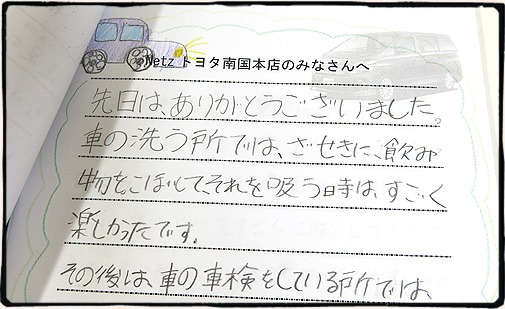 Netz トヨタ南国本店のみなさんへ
先日は、ありがとうございました。
車の洗う所では、ざせきに、飲み
物をこぼして、それを吸う時は、すごく
楽しかったです。
その後は、車の車検をしている所では、